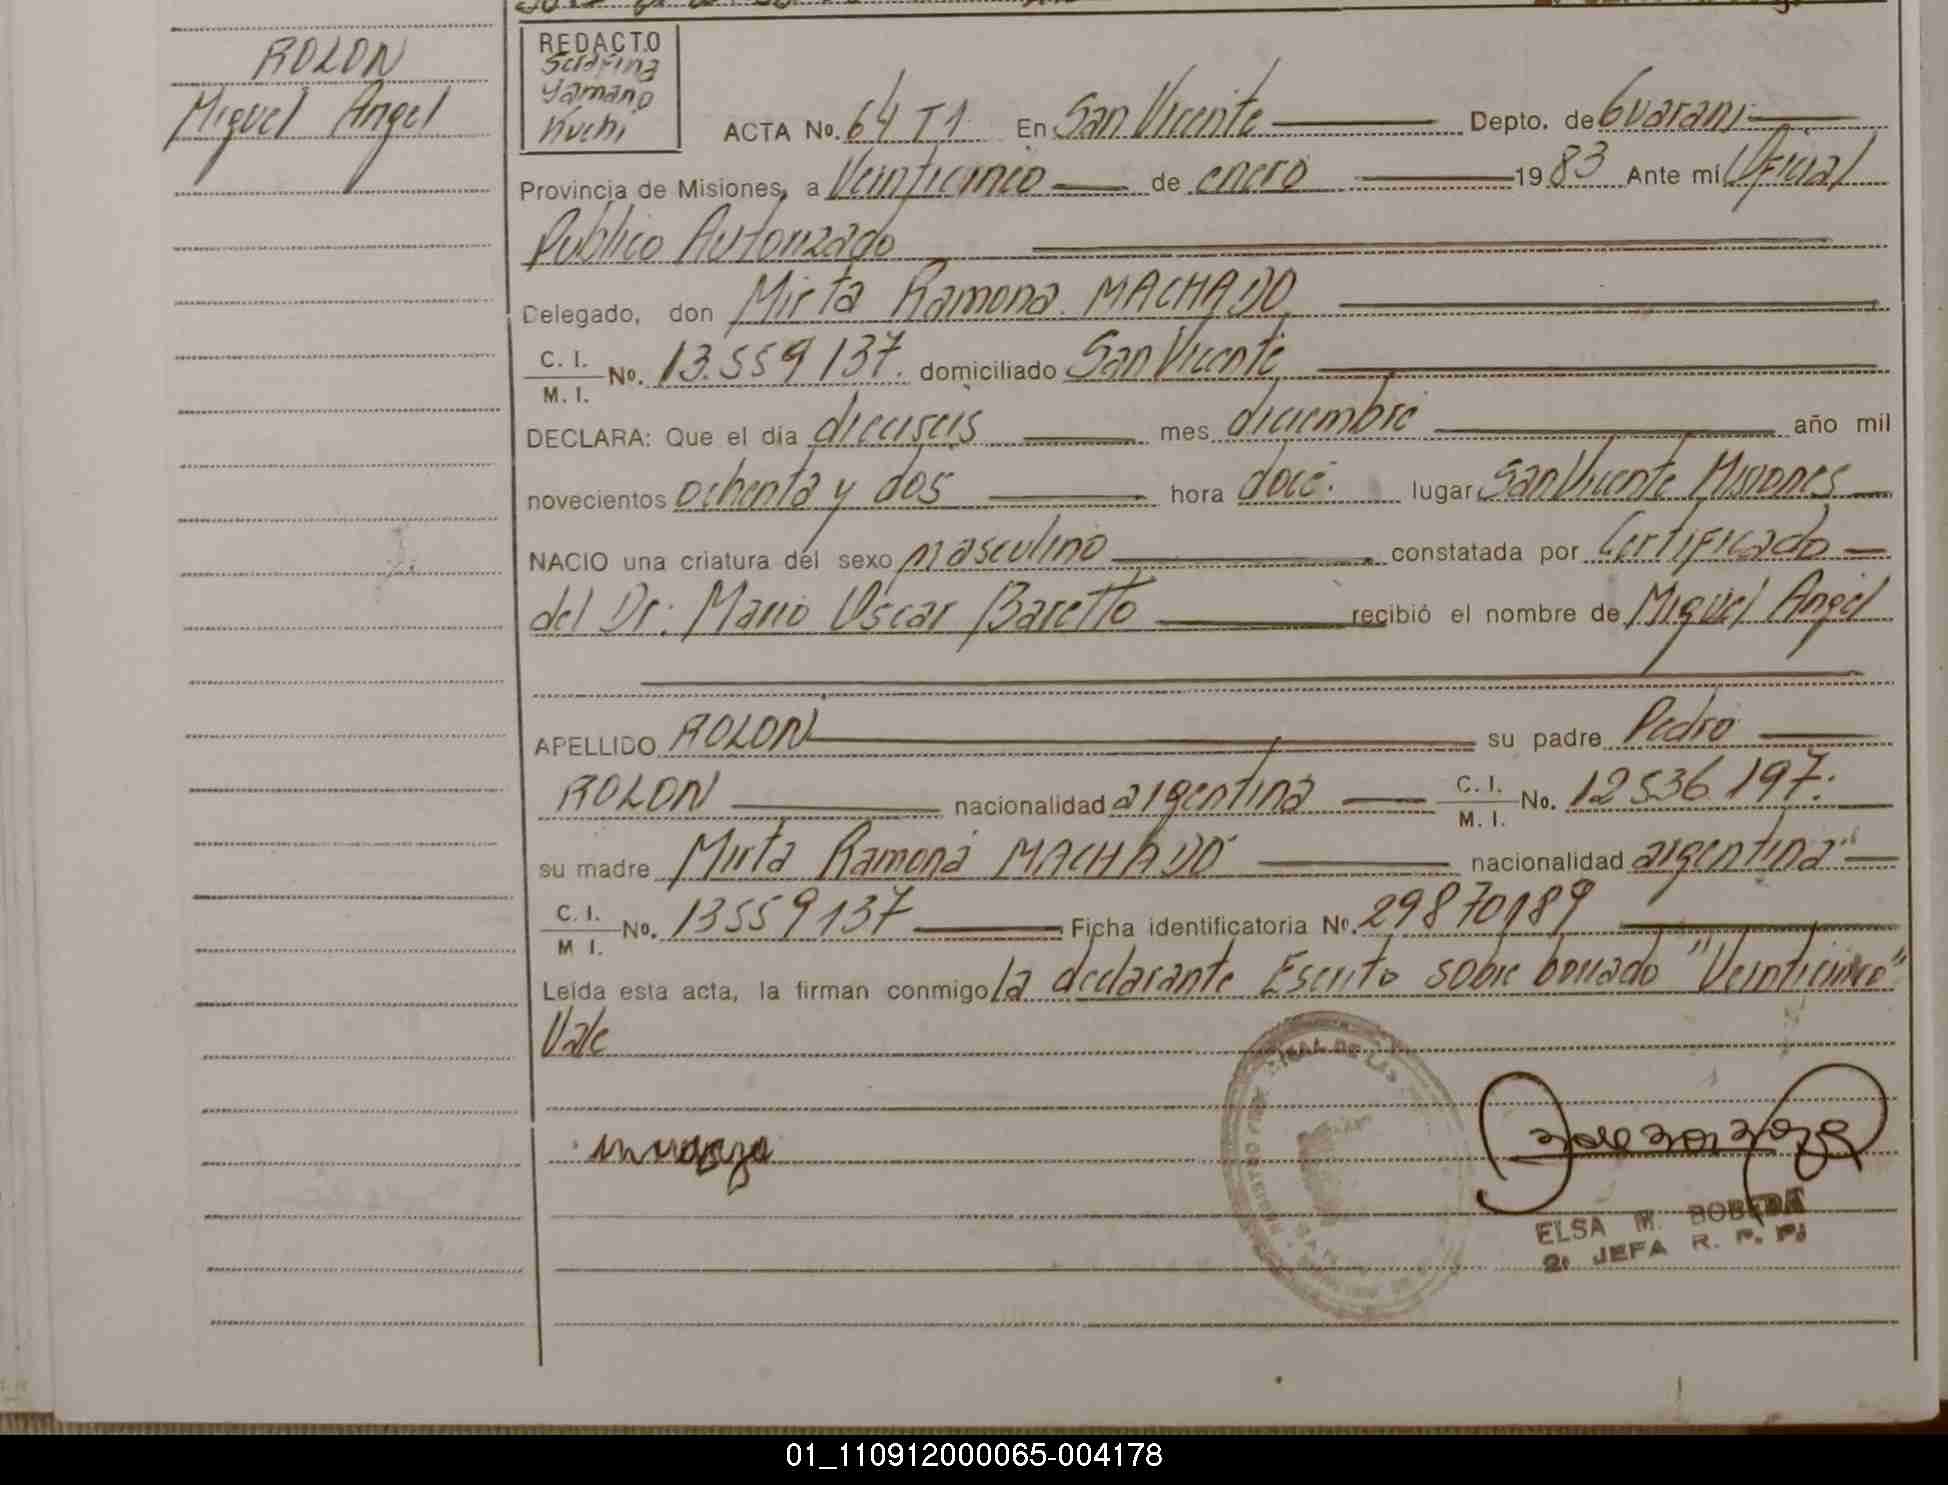 ROLON
Miguel Angel
REDACTO
Yamano
Kuchi
ACTA No. 64 T1 En San Vicente Depto. de Guarani
Provincia de Misiones, a Veinticinco de enero 1983 Ante mi Oficial
Publico Autorizado
Delegado, don Mirta Ramona MACHADO
C. I.
M. I. No. 13.559137. domiciliado San Vicente
DECLARA: Que el dia dieciseis mes diciembre año mil
novecientos ochenta y dos hora doce. lugar San Vicente Misiones
NACIO una criatura del sexo masculino constatada por Certificado
del Dr. Mario Oscar Baretto recibió el nombre de Miguel Angel
APELLIDO ROLON su padre Pedro
ROLON nacionalidad argentina C. I. M. I. No. 12536197.
su madre Mirta Ramona MACHADO nacionalidad argentina
C. I. M I. No. 13559137 Ficha identificatoria No. 29870189
Leída esta acta, la firman conmigo la declarante Escrito sobre borrado "Veinticinco"
Vale
ELSA M.
2. JEFA R. P. P.
01_110912000065-004178